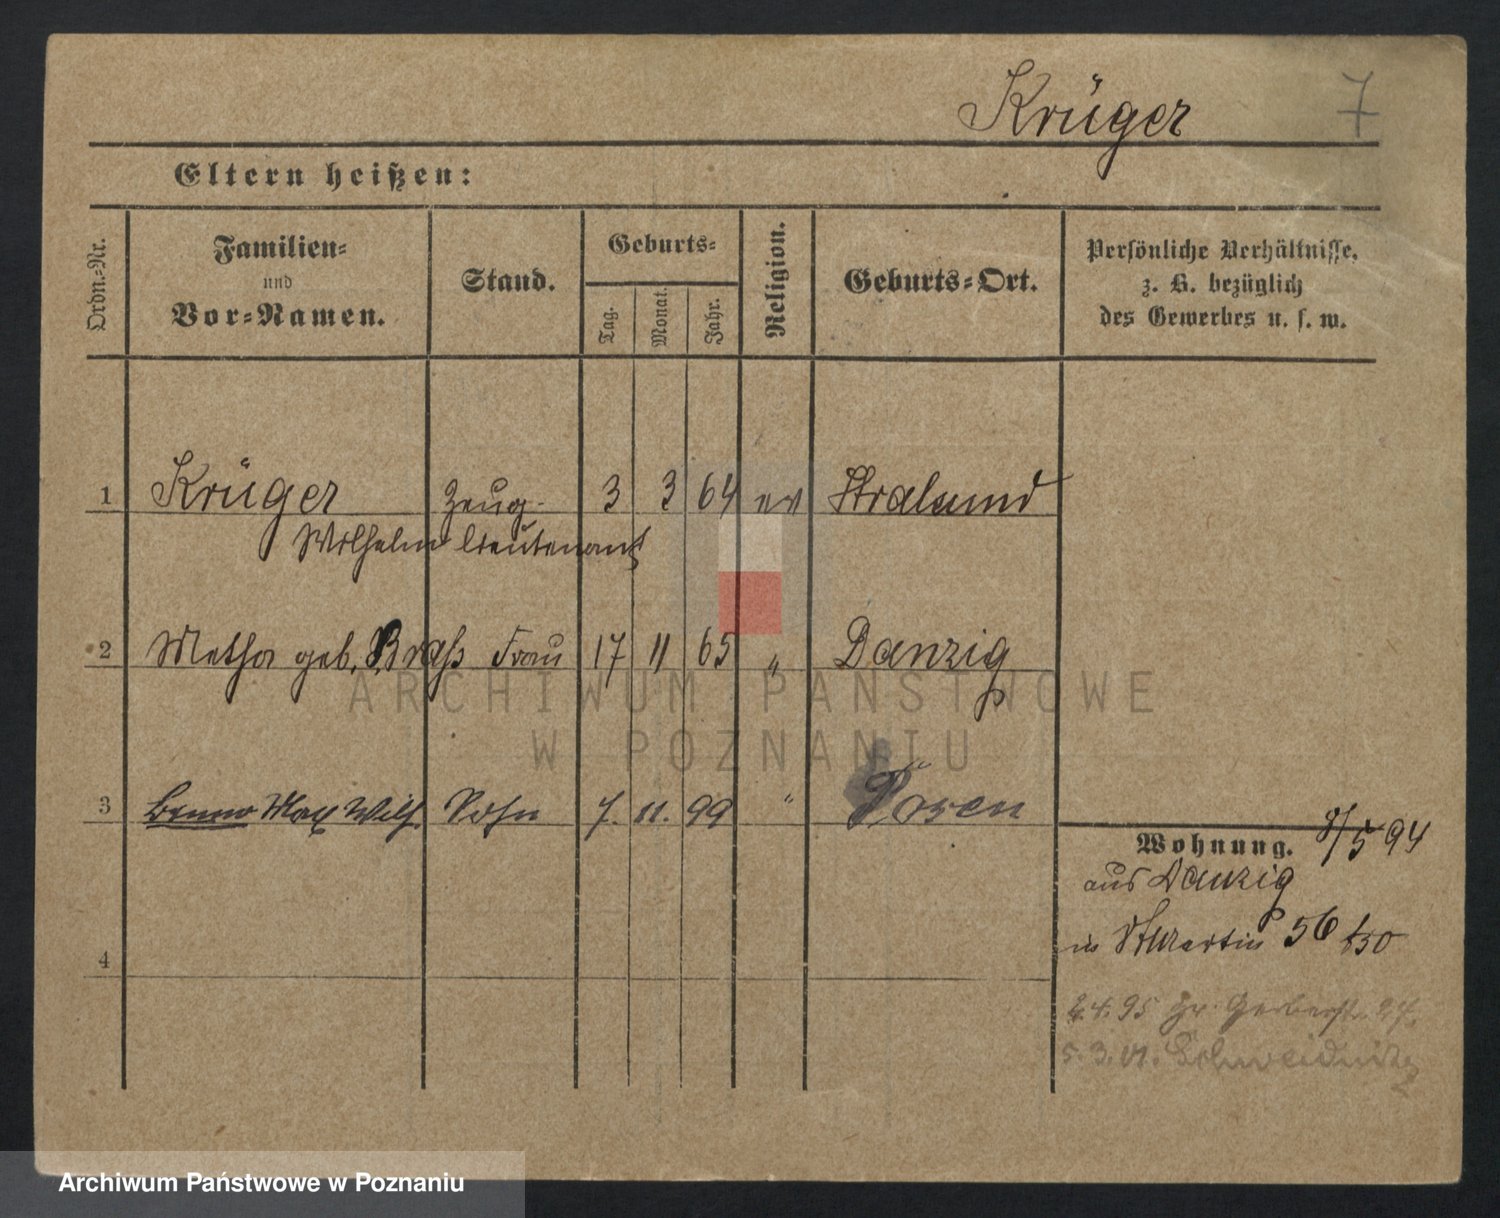 Krüger 7
Eltern heißen:
Ordn.-Nr.
Familien-
und
Vor-Namen.
Stand.
Geburts-
Tag.
Monat.
Jahr.
Religion.
Geburts-Ort.
Persönliche Verhältnisse,
z. B. bezüglich
des Gewerbes u. s. w.
1 Krüger Zeug- 3 3 64 ev Stralsund
Wilhelm lieutenant
2 Metha geb. Braß Frau 17 11 65 " Danzig
ARCHIWUM PAŃSTWOWE
W POZNANIU
3 Benno Max Wilh. Sohn 7. 11. 99 " Posen
Wohnung. 8/5 94
aus Danzig
in St Martin 56
4
4. 95 Gerberstr.
5. 3. 01. Schweidnitz
Archiwum Państwowe w Poznaniu